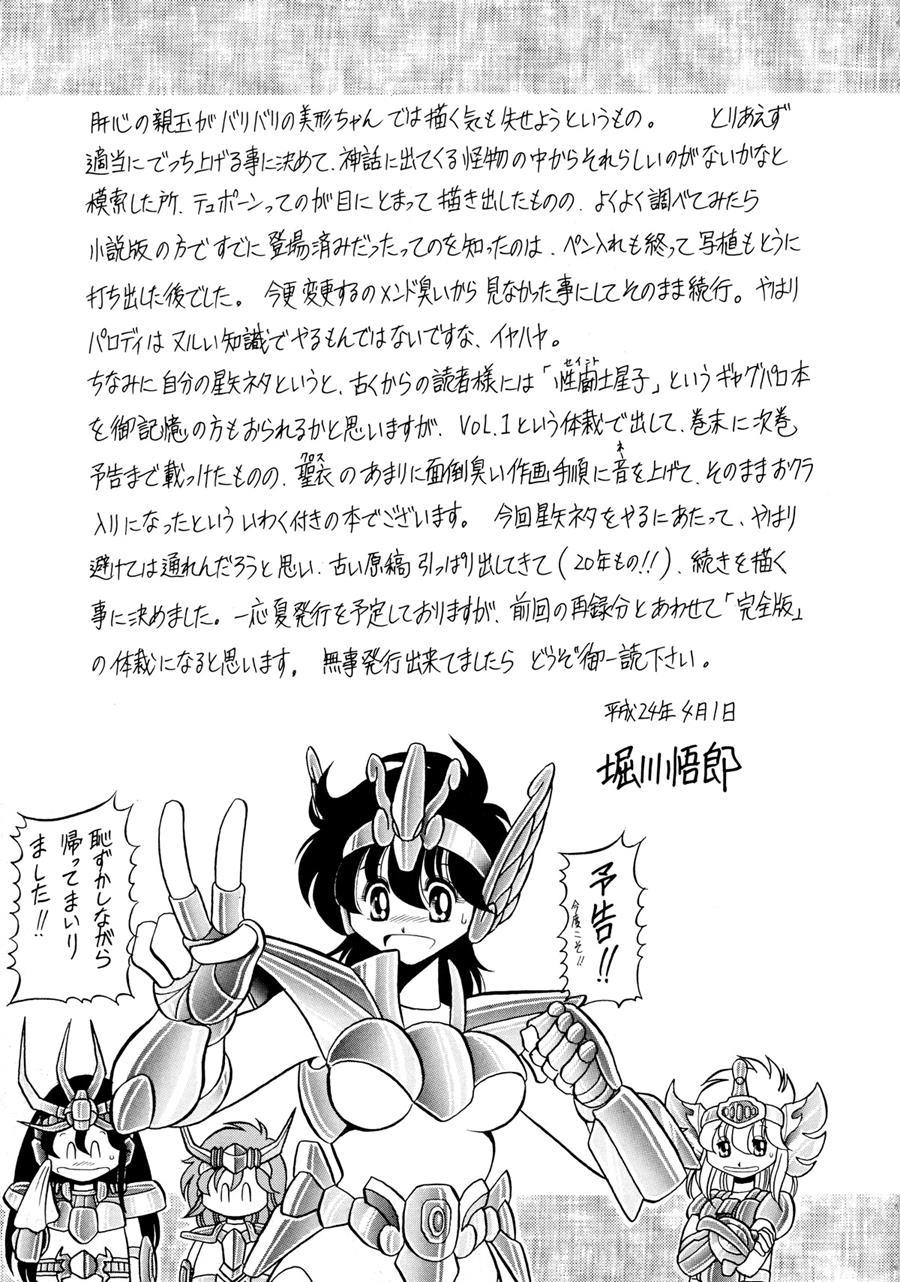 肝心の親玉がバリバリの美形ちゃんでは描く気も失せようというもの。　とりあえず
適当にでっち上げる事に決めて、神話に出てくる怪物の中からそれらしいのがないかなと
模索した所、テュポーンってのが目にとまって描き出したものの、よくよく調べてみたら
小説版の方ですでに登場済みだったってのを知ったのは、ペン入れも終って写植もとうに
打ち出した後でした。今更変更するのメンド臭いから見なかった事にしてそのまま続行。やはり
パロディはヌルい知識でやるもんではないですな、イヤハヤ。
セイント
ちなみに自分の星矢ネタというと、古くからの読者様には「性闘士星子」というギャグパロ本
を御記憶の方もおられるかと思いますが、VOL.1という体裁で出して、巻末に次巻
クロス
ネ
予告まで載っけたものの、聖衣のあまりに面倒臭い作画手順に音を上げて、そのままおクラ
入りになったといういわく付きの本でございます。今回星矢ネタをやるにあたって、やはり
避けては通れんだろうと思い、古い原稿引っぱり出してきて(20年もの!!)、続きを描く
事に決めました。一応夏発行を予定しておりますが、前回の再録分とあわせて「完全版」
の体裁になると思います。無事発行出来てましたらどうぞ御一読下さい。
平成24年4月1日
堀川悟郎
予告!!
今度こそ!!
恥ずかしながら
帰ってまいり
ました!!